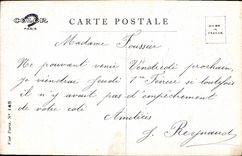 CELER
PARIS
CARTE POSTALE
Madame Poussier
Ne pouvant venir Vendredi prochain,
je viendrai Jeudi 1er Fevrier si toutefois
il n'y avait pas d'empêchement
de votre coté
Amitiés
J. Reynaud